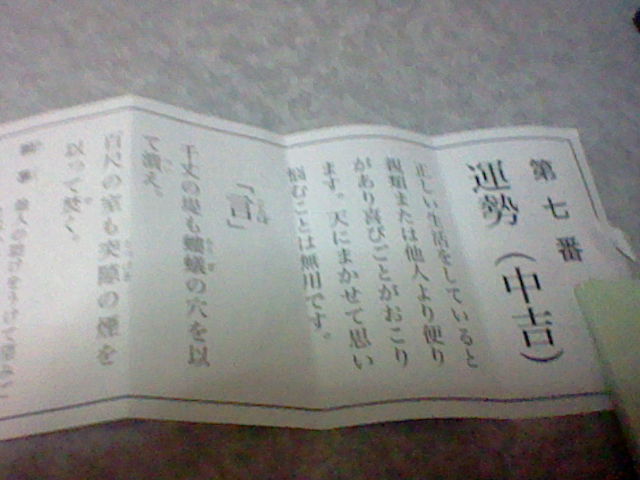 第七番
運勢（中吉）
正しい生活をしていると
親類または他人より便り
があり喜びごとがおこり
ます。天にまかせて思い
悩むことは無用です。
「言」
千丈の堤も螻蟻の穴を以
て潰え。
百尺の室も突隙の煙を
以って焚く。